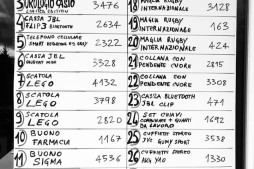 OROLOGIO CASIO
LIMITED EDITION 3476
4 CASSA JBL
FLIP3 BLUETOOTH 2634
5 TELEFONO CELLULARE
SMART 2322
6 CASSA JBL
3328
7 SCATOLA
LEGO 4132
8 SCATOLA
LEGO 3798
9 SCATOLA
LEGO 2820
10 BUONO
FARMACIA 1167
11 BUONO
SIGMA 4536
18 MAGLIA RUGBY
INTERNAZIONALE 3128
19 MAGLIA RUGBY
INTERNAZIONALE 163
20 MAGLIA RUGBY
INTERNAZIONALE 424
21 COLLANA CON
PENDENTE CUORE 2815
22 COLLANA CON
PENDENTE CUORE 3308
23 CASSA BLUETOOTH
JBL CLIP 471
24 SET CHIAVI
COMBINATE + GUANTI
DA LAVORO 1692
25 CUFFIETTE STEREO
JVC GUMY 5087
26 CUFFIETTE STEREO
1330